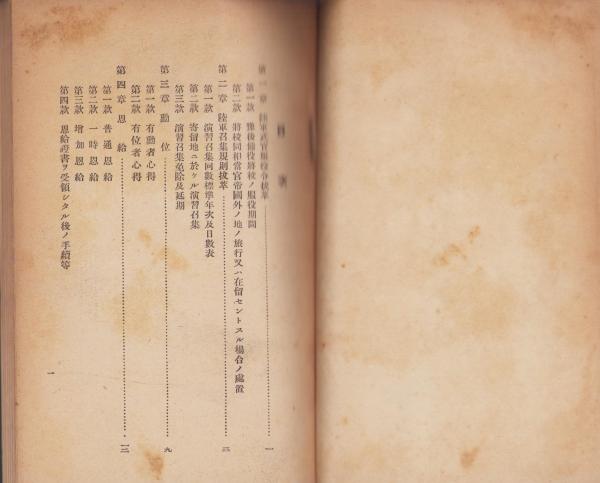 目次
第一章 陸軍武官服役令抜萃………一
第一款 豫後備役將校ノ服役期間
第二款 將校同相當官帝國外ノ地ノ旅行又ハ在留セントスル場合ノ處置
第二章 陸軍召集規則抜萃………三
第一款 演習召集回數標準年次及日數表
第二款 寄留地ニ於ケル演習召集
第三款 演習召集免除及延期
第三章 勳位………九
第一款 有勳者心得
第二款 有位者心得
第四章 恩給………一三
第一款 普通恩給
第二款 一時恩給
第三款 增加恩給
第四款 恩給證書ヲ受領シタル後ノ手續等
一